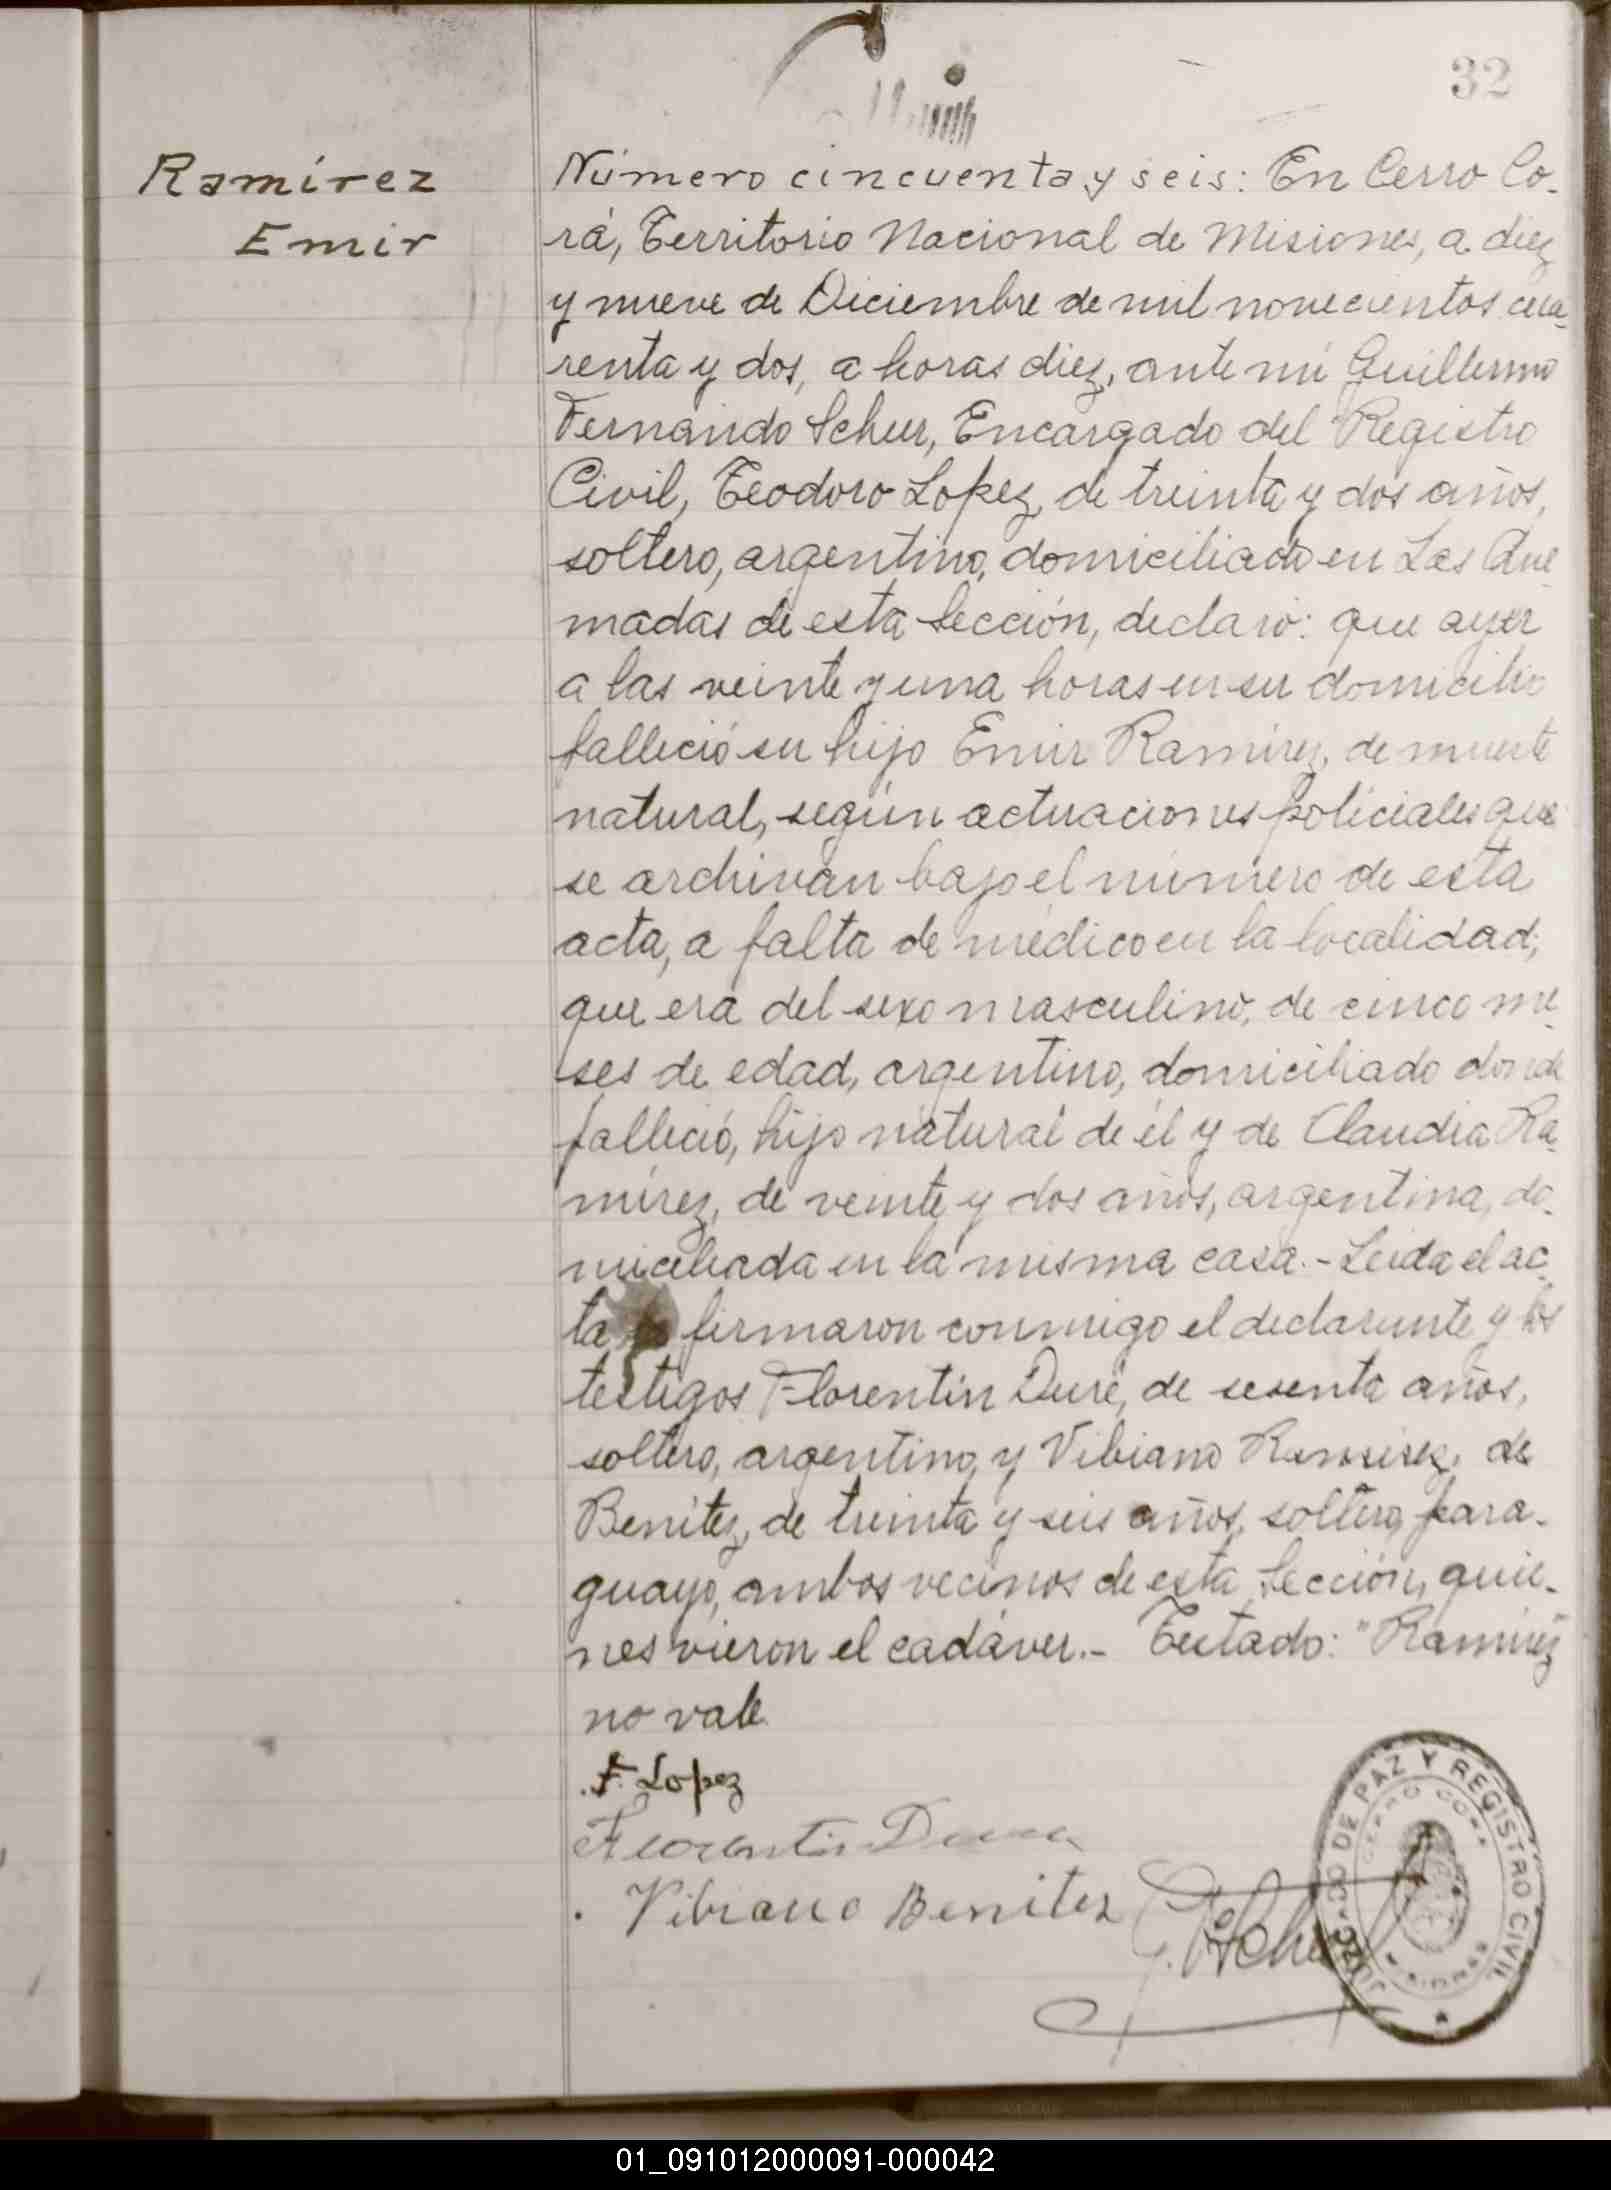 32
Ramírez
Emir
Número cincuenta y seis: En Cerro Co-
rá, Territorio Nacional de Misiones, a diez
y nueve de Diciembre de mil novecientos cua-
renta y dos, a horas diez, ante mí Guillermo
Fernando Scheer, Encargado del Registro
Civil, Teodoro Lopez, de treinta y dos años,
soltero, argentino, domiciliado en Las Que-
madas de esta Sección, declaró: que ayer
a las veinte y una horas en su domicilio
falleció su hijo Emir Ramírez, de muerte
natural, según actuaciones policiales que
se archivan bajo el número de esta
acta, a falta de médico en la localidad;
que era del sexo masculino, de cinco me-
ses de edad, argentino, domiciliado donde
falleció, hijo natural de él y de Claudia Ra-
mírez, de veinte y dos años, argentina, do-
miciliada en la misma casa.- Leida el ac-
ta firmaron conmigo el declarante y los
testigos Florentín Duré, de sesenta años,
soltero, argentino, y Vibiano Ramirez, de
Benitez, de treinta y seis años, soltero, para-
guayo, ambos vecinos de esta Sección, quie-
nes vieron el cadáver.- Testado: "Ramirez"
no vale.
T. Lopez
Florentin
Vibiano Benitez
JUZGADO DE PAZ Y REGISTRO CIVIL
CERRO CORÁ
MISIONES
01_091012000091-000042